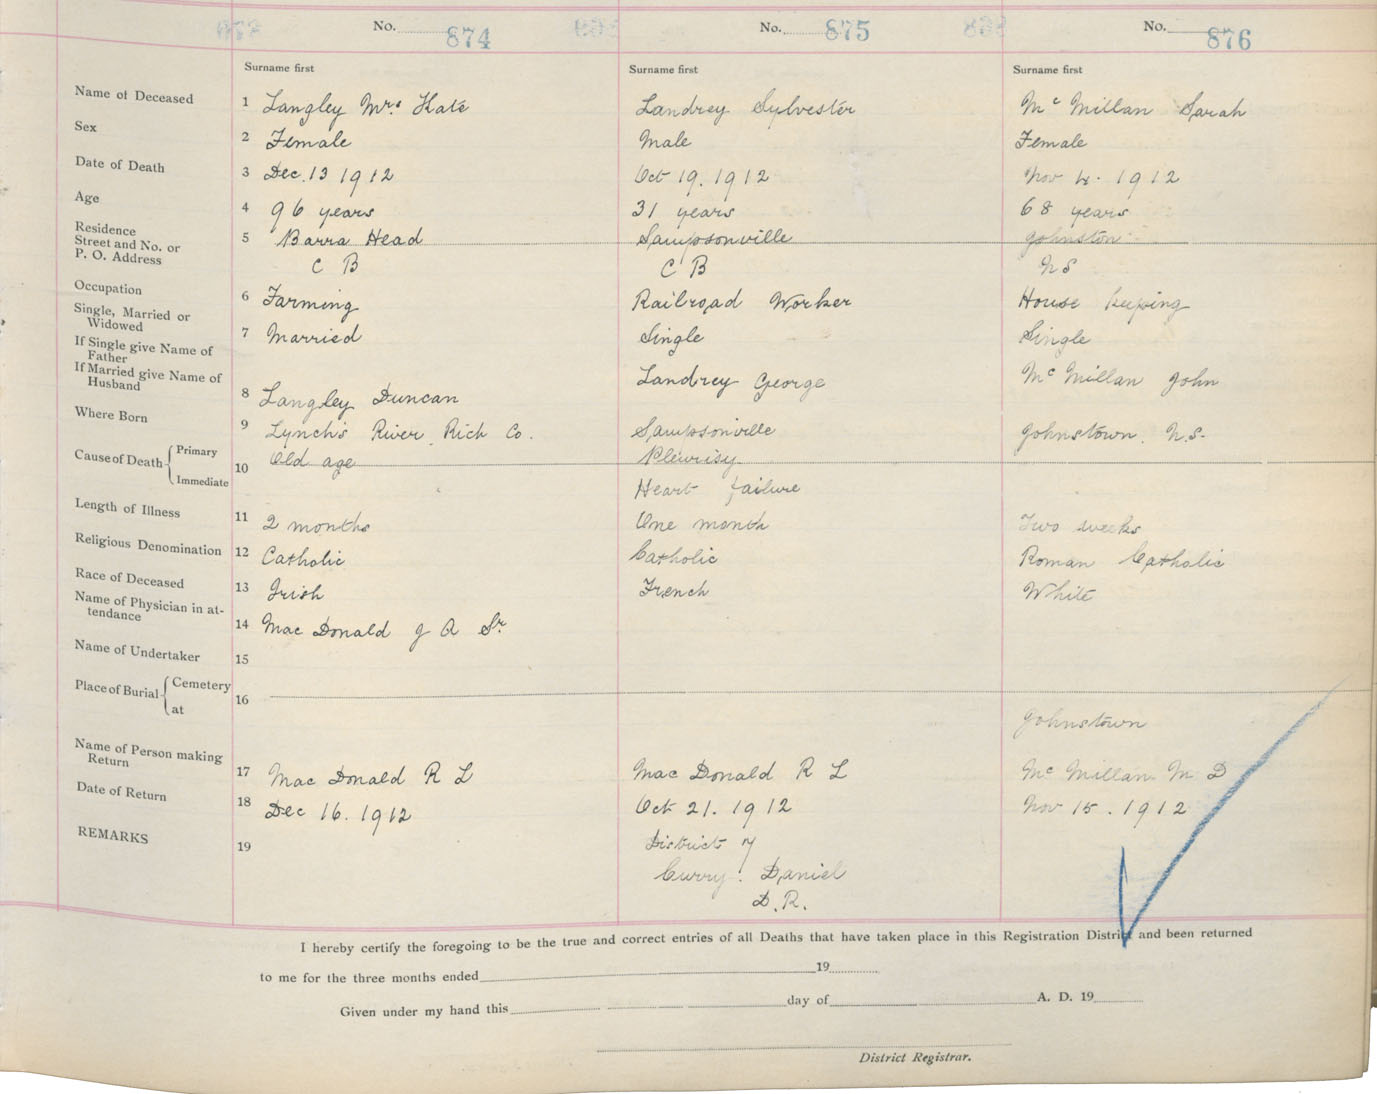 No. 874 No. 875 No. 876
Surname first Surname first Surname first
Name of Deceased 1 Langley Mrs Kate Landrey Sylvester Mc Millan Sarah
Sex 2 Female Male Female
Date of Death 3 Dec. 13 1912 Oct 19. 1912 Nov 4. 1912
Age 4 96 years 31 years 68 years
Residence
Street and No. or 5 Barra Head Sampsonville Johnston
P. O. Address C B C B N S
Occupation 6 Farming Railroad Worker House keeping
Single, Married or
Widowed 7 Married Single Single
If Single give Name of
Father
If Married give Name of Landrey George Mc Millan John
Husband 8 Langley Duncan
Where Born 9 Lynch's River, Rich Co. Sampsonville Johnstown. N.S.
Cause of Death Primary 10 Old age Pleurisy
Immediate Heart failure
Length of Illness 11 2 months One month Two weeks
Religious Denomination 12 Catholic Catholic Roman Catholic
Race of Deceased 13 Irish French White
Name of Physician in at-
tendance 14 Mac Donald J A Sr.
Name of Undertaker 15
Place of Burial Cemetery 16
at Johnstown
Name of Person making
Return 17 Mac Donald R L Mac Donald R L Mc Millan M D
Date of Return 18 Dec 16. 1912 Oct 21. 1912 Nov 15. 1912
REMARKS 19 District 7
Curry. Daniel
D.R.
I hereby certify the foregoing to be the true and correct entries of all Deaths that have taken place in this Registration District and been returned
to me for the three months ended 19
Given under my hand this day of A. D. 19
District Registrar.